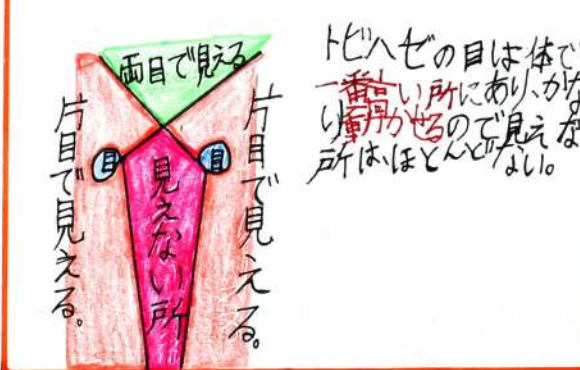 両目で見える
片目で見える。
目
見えない所
目
片目で見える。
トビハゼの目は体で
一番高い所にあり、かな
り動かせるので見えな
所は、ほとんどない。